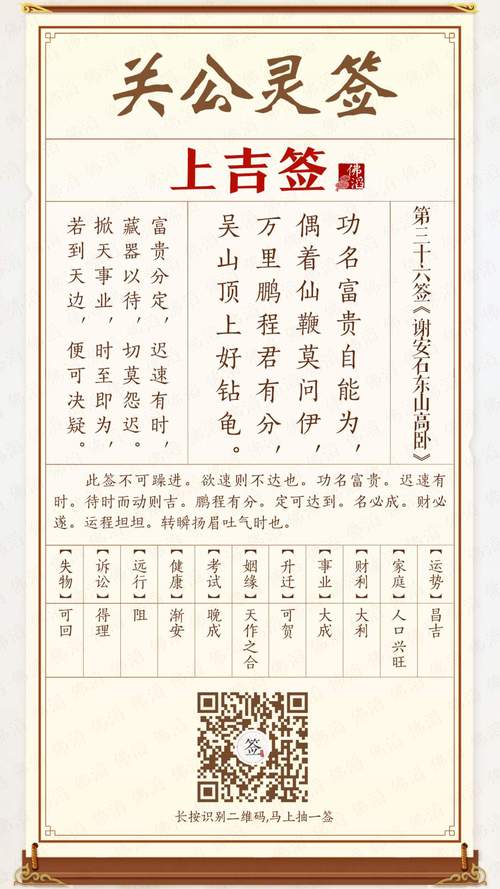 关公灵签
上吉签
佛滔
第三十六签《谢安石东山高卧》
功名富贵自能为，
偶着仙鞭莫问伊，
万里鹏程君有分，
吴山顶上好钻龟。
富贵分定，迟速有时，
藏器以待，切莫怨迟。
掀天事业，时至即为，
若到天边，便可决疑。
此签不可躁进。欲速则不达也。功名富贵。迟速有
时。待时而动则吉。鹏程有分。定可达到。名必成。财必
遂。运程坦坦。转瞬扬眉吐气时也。
【运势】昌吉
【家庭】人口兴旺
【财利】大利
【事业】大成
【升迁】可贺
【姻缘】天作之合
【考试】晚成
【健康】渐安
【远行】阻
【诉讼】得理
【失物】可回
签
长按识别二维码,马上抽一签